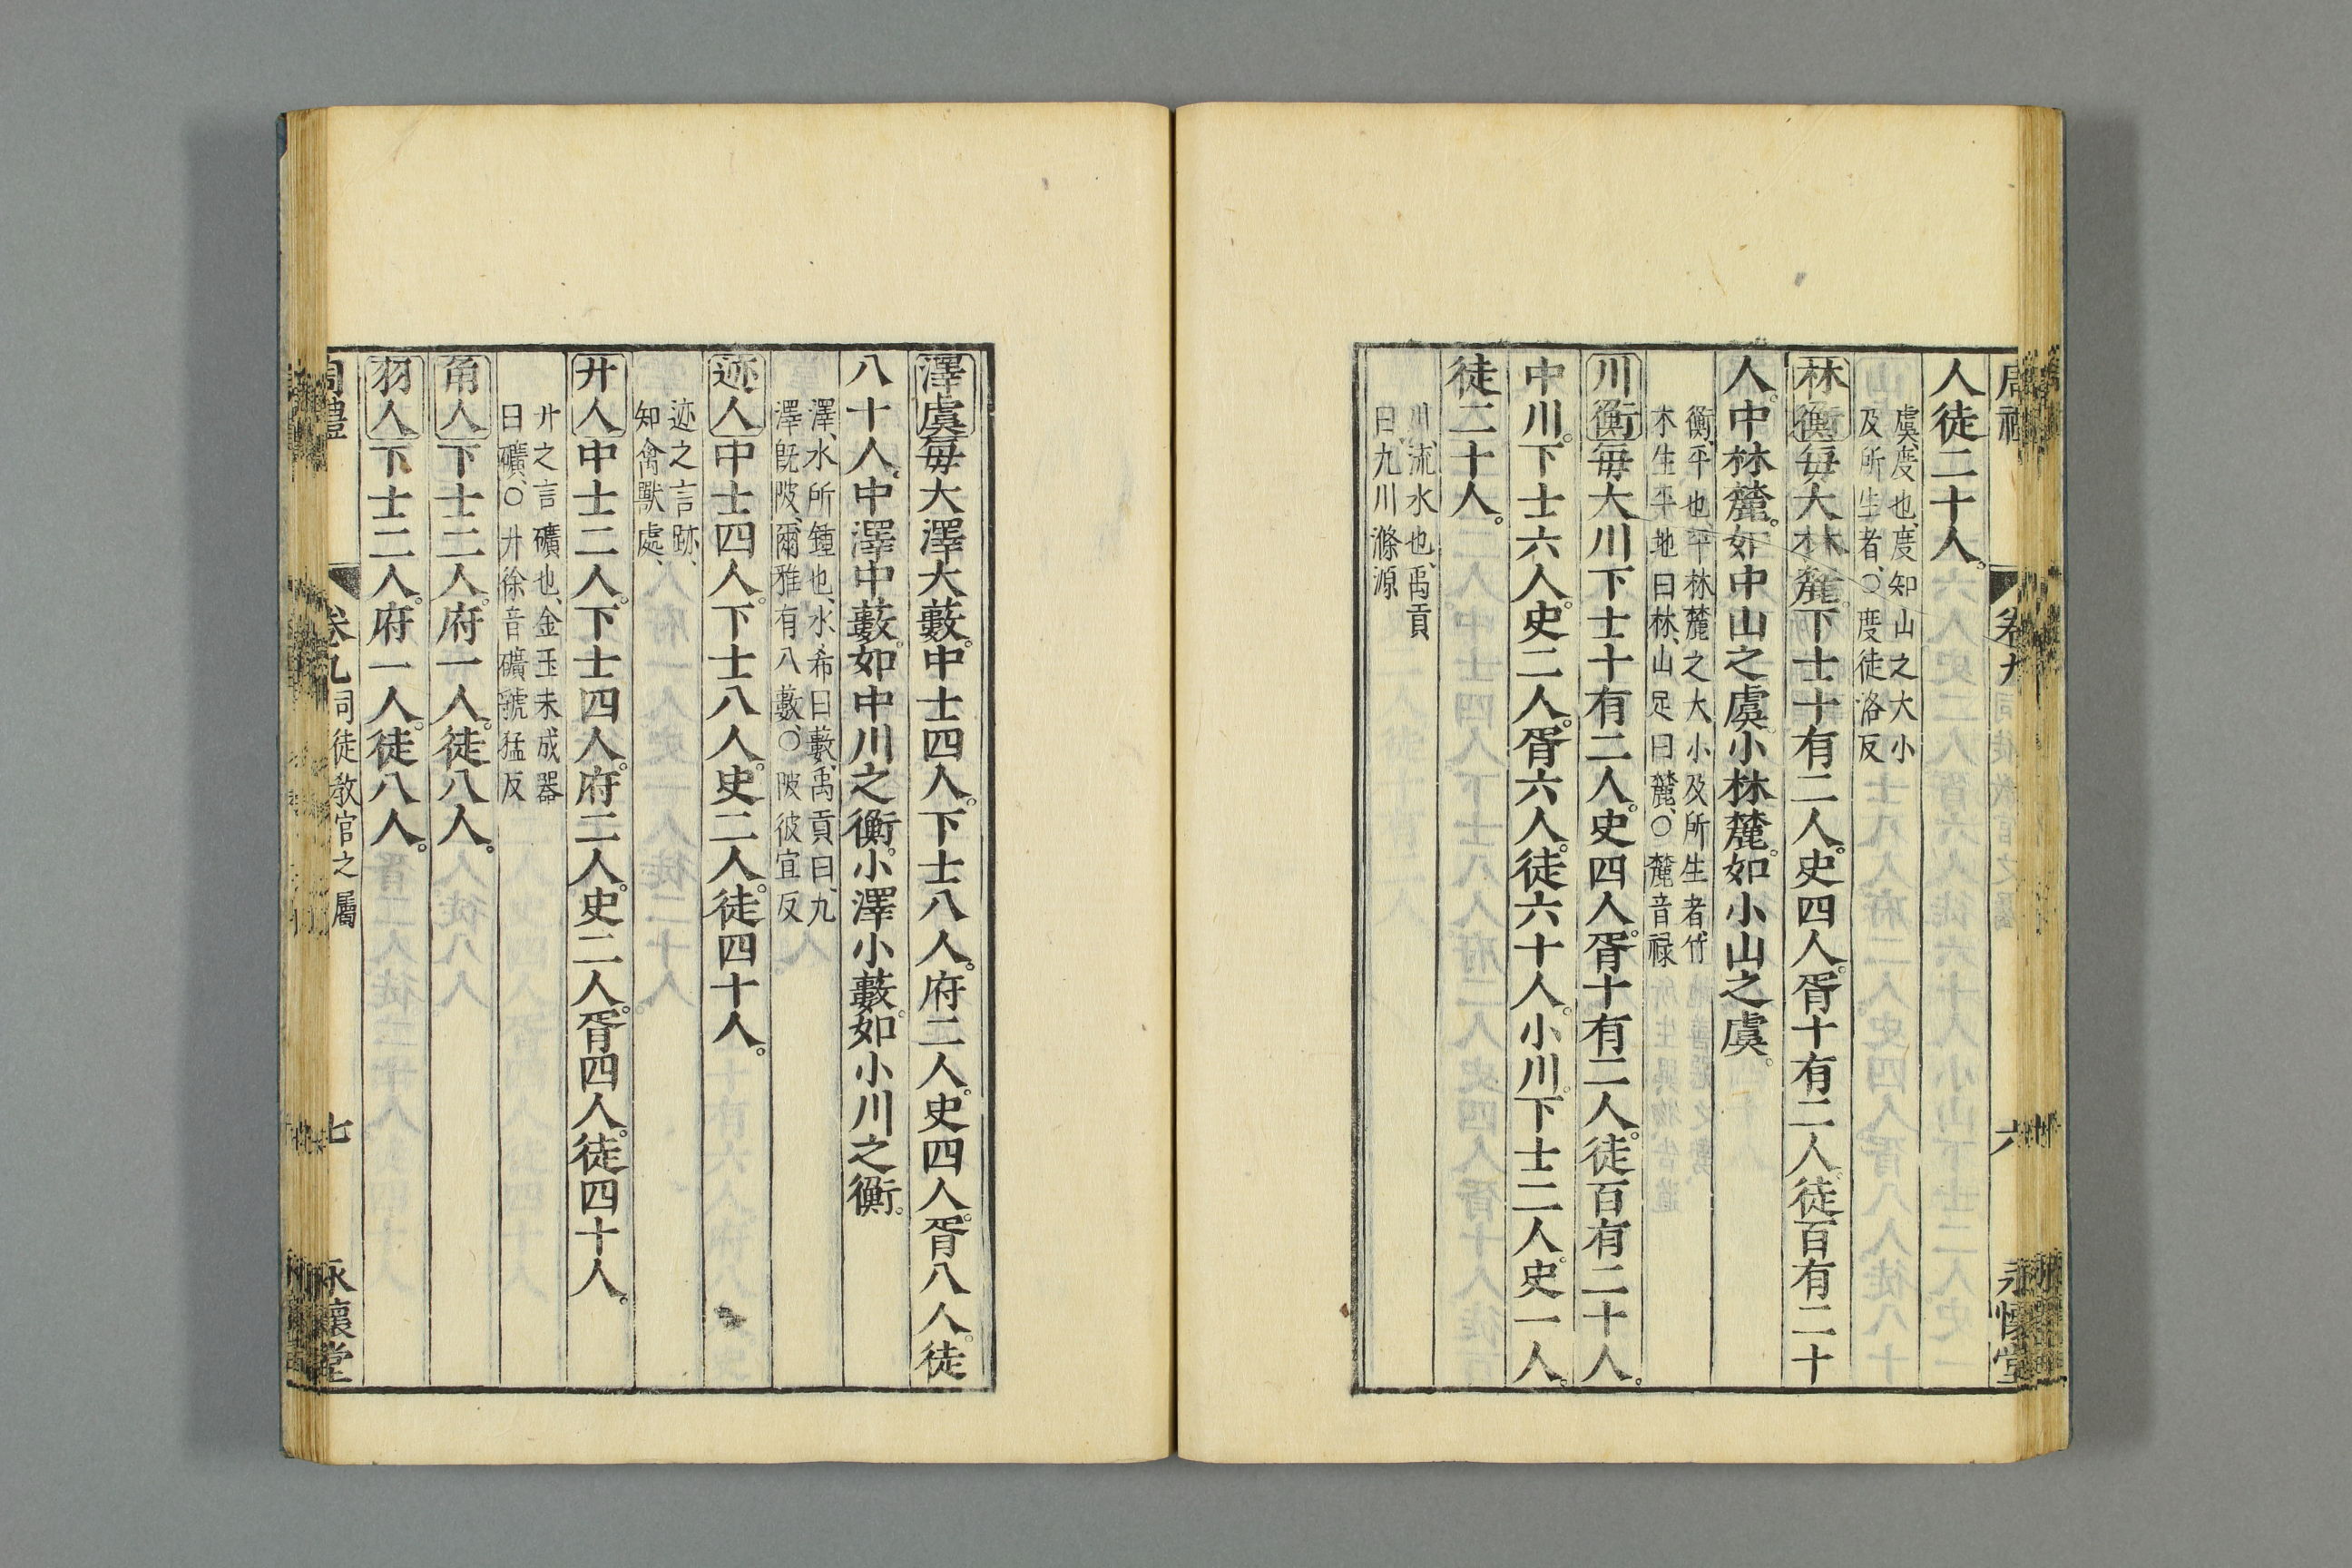 人徒二十人。
虞、度也、度知山之大小
及所生者、○度徒洛反
林衡每大林麓。下士十有二人。史四人。胥十有二人。徒百有二十
人。中林麓。如中山之虞。小林麓。如小山之虞。
衡、平也、平林麓之大小及所生者、竹
木生平地曰林、山足曰麓、○麓音祿
川衡每大川下士十有二人。史四人。胥十有二人。徒百有二十人。
中川。下士六人。史二人。胥六人。徒六十人。小川。下士二人。史一人。
徒二十人。
川、流水也、禹貢
曰、九川滌源
卷九
六
永懷堂
澤虞每大澤大藪。中士四人。下士八人。府二人。史四人。胥八人。徒
八十人。中澤中藪。如中川之衡。小澤小藪。如小川之衡。
澤、水所鍾也、水希曰藪、禹貢曰、九
澤旣陂、爾雅有八藪、○陂彼宜反
迹人中士四人。下士八人。史二人。徒四十人。
迹之言跡、
知禽獸處、
廾人中士二人。下士四人。府二人。史二人。胥四人。徒四十人。
廾之言礦也、金玉未成器
曰礦、○廾徐音礦虢猛反
角人下士二人。府一人。徒八人。
羽人下士二人。府一人。徒八人。
周禮
卷九 司徒教官之屬
七
永懷堂